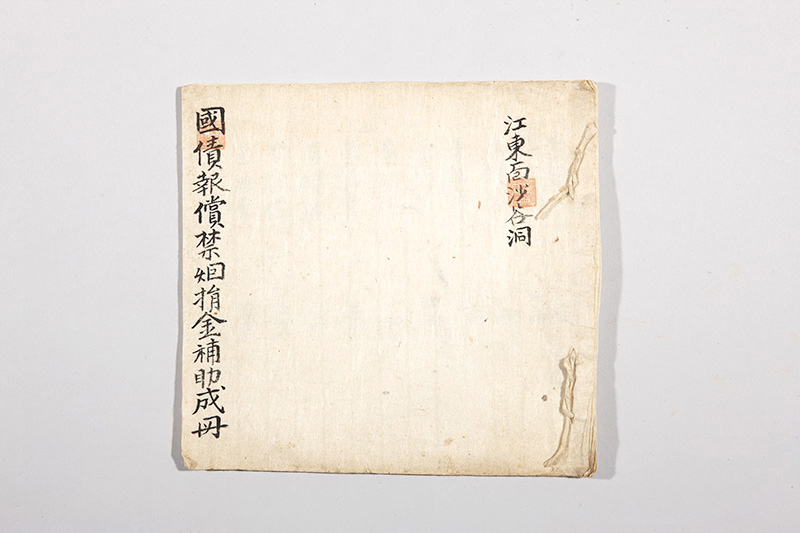 江東面沙谷洞
國債報償禁烟捐金補助成冊